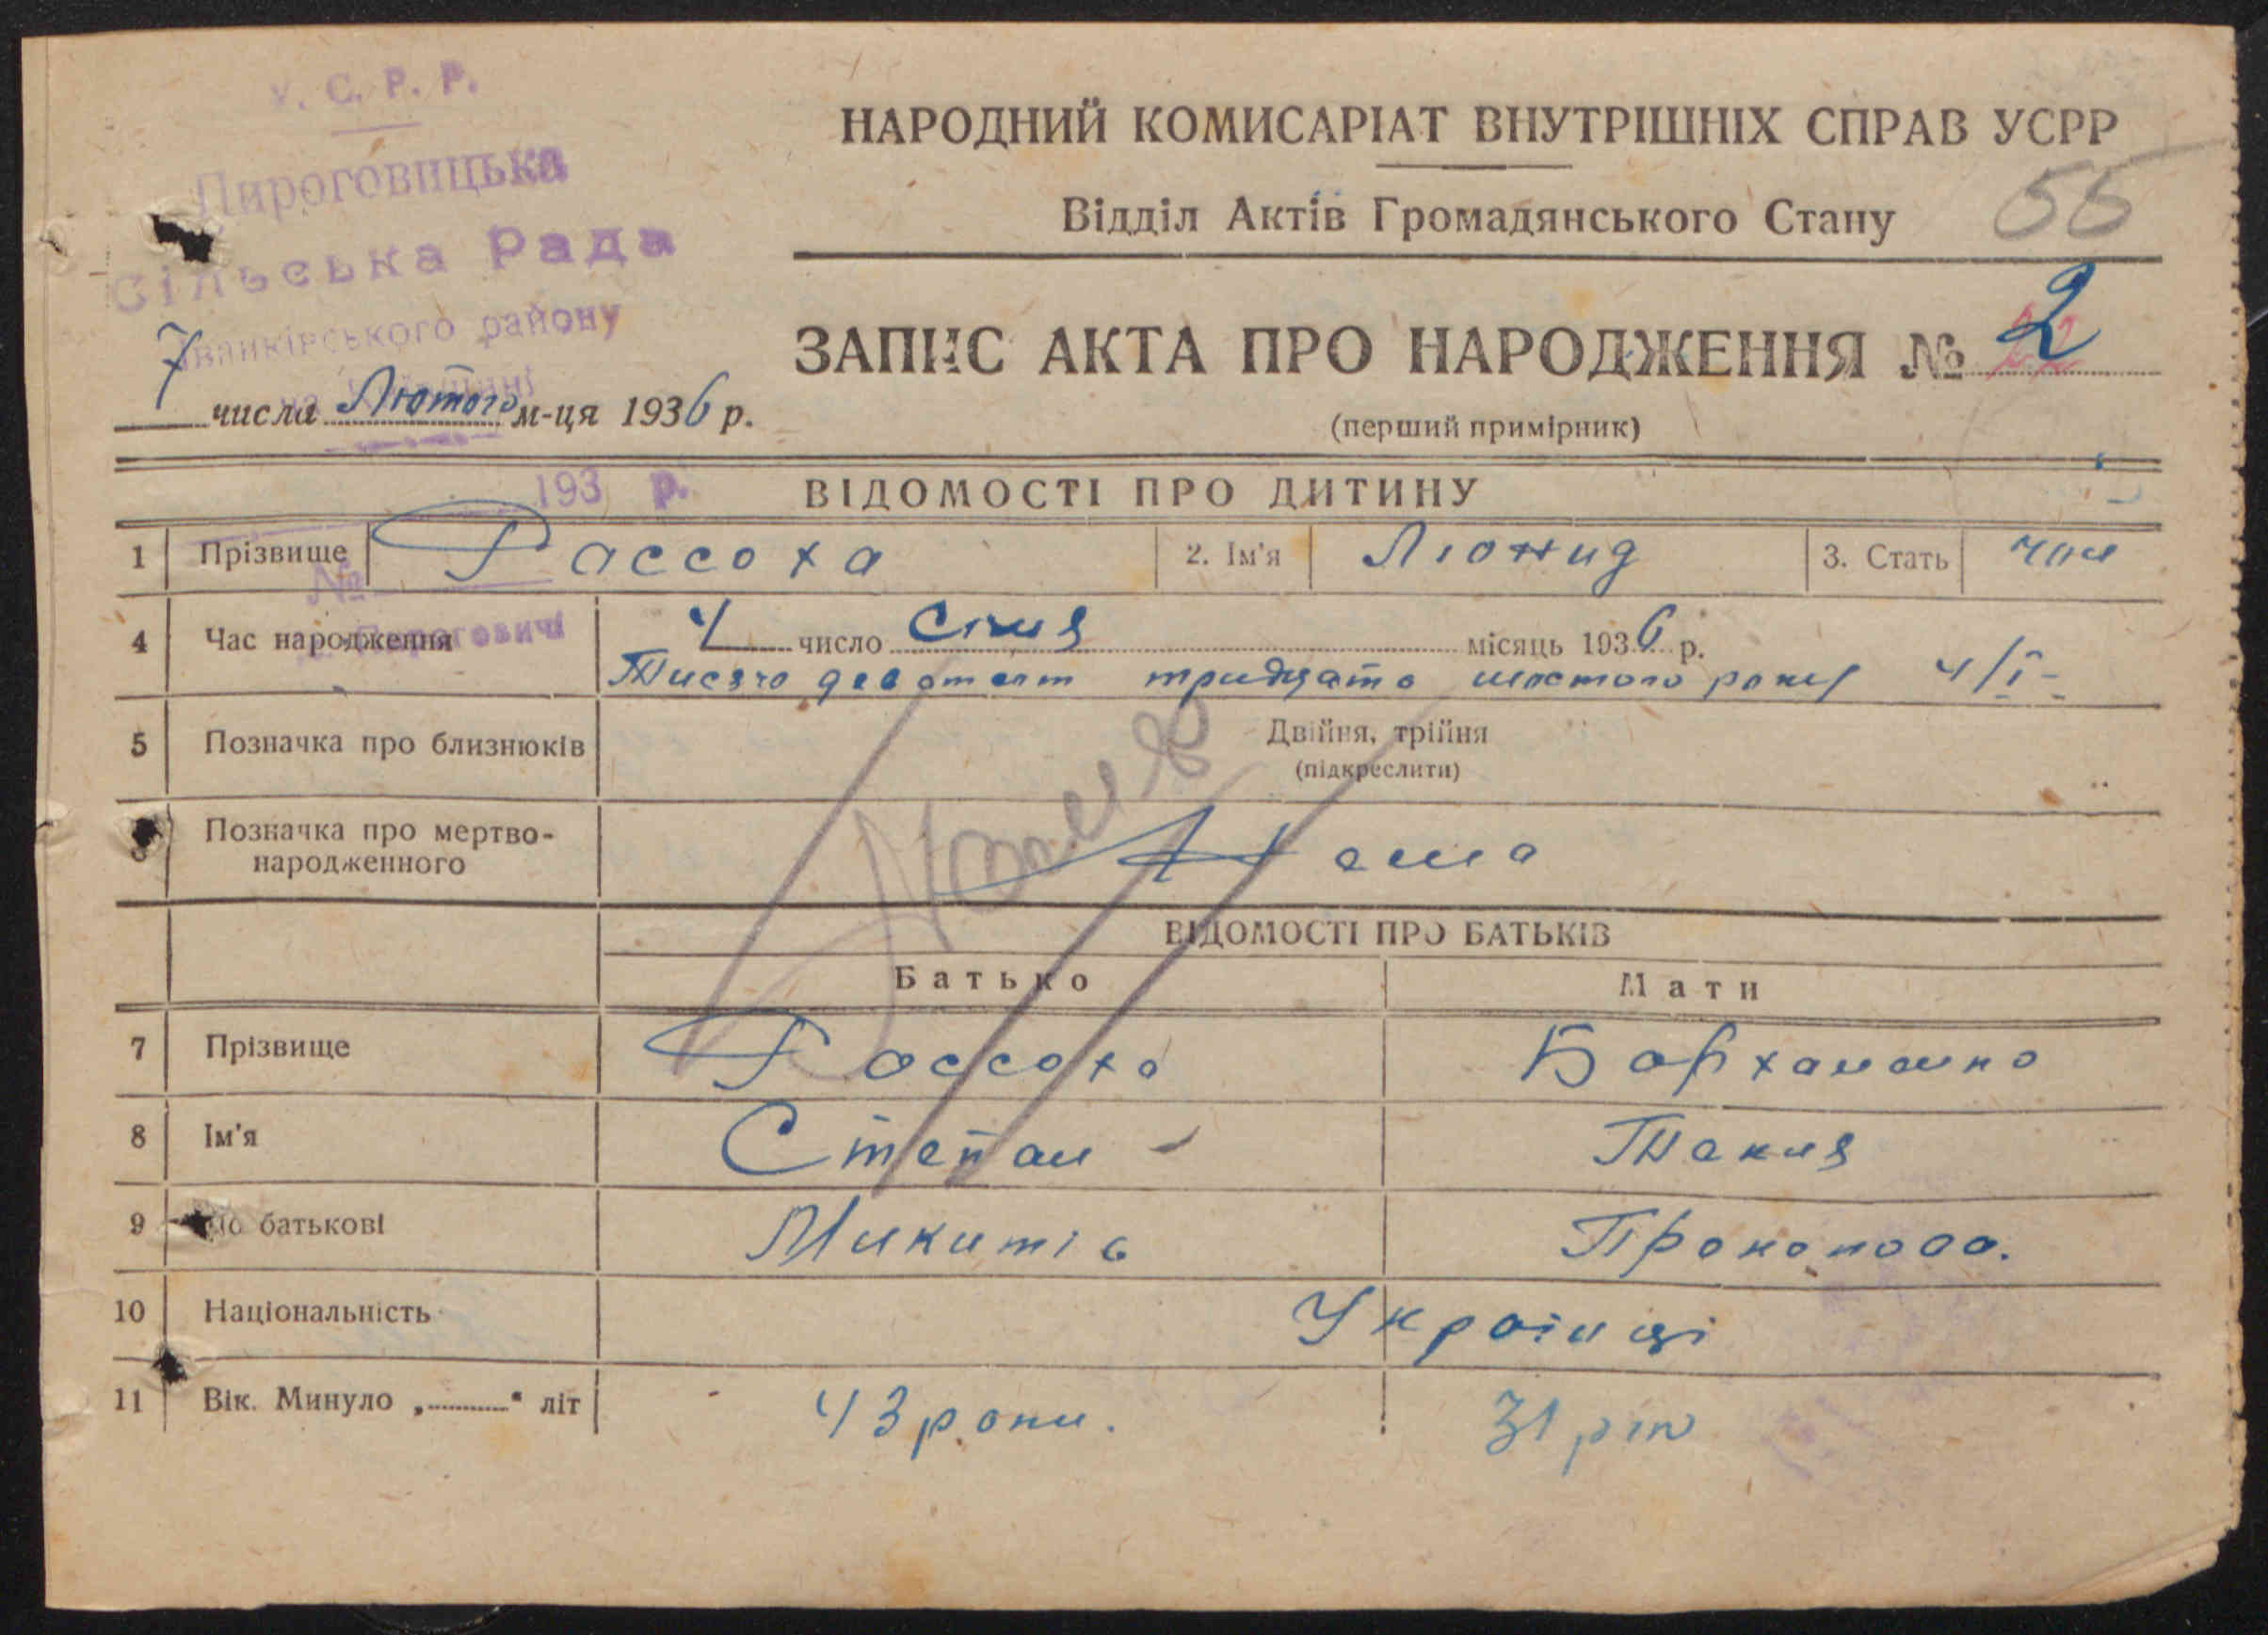 У. С. Р. Р.
Пироговицька
Сільська Рада
Іванківського району
НАРОДНИЙ КОМИСАРІАТ ВНУТРІШНІХ СПРАВ УСРР
Відділ Актів Громадянського Стану 55
ЗАПИС АКТА ПРО НАРОДЖЕННЯ № 2
(перший примірник)
7 числа Лютого м-ця 1936 р.
193 р.
№
Пироговичі
ВІДОМОСТІ ПРО ДИТИНУ
1 Прізвище Рассоха 2. Ім'я Люнид 3. Стать чол
4 Час народження 4 число Січня місяць 1936 р.
Тисяча девятсот тридцято шостого року 4/I-
5 Позначка про близнюків Двійня, трійня
(підкреслити)
6 Позначка про мертво-
народженного Нема
ВІДОМОСТІ ПРО БАТЬКІВ
Батько Мати
7 Прізвище Рассоха Бархаленко
8 Ім'я Степан Текля
9 По батькові Микитів Прокопова.
10 Національність Українці
11 Вік. Минуло „ “ літ 43 роки. 31 рік